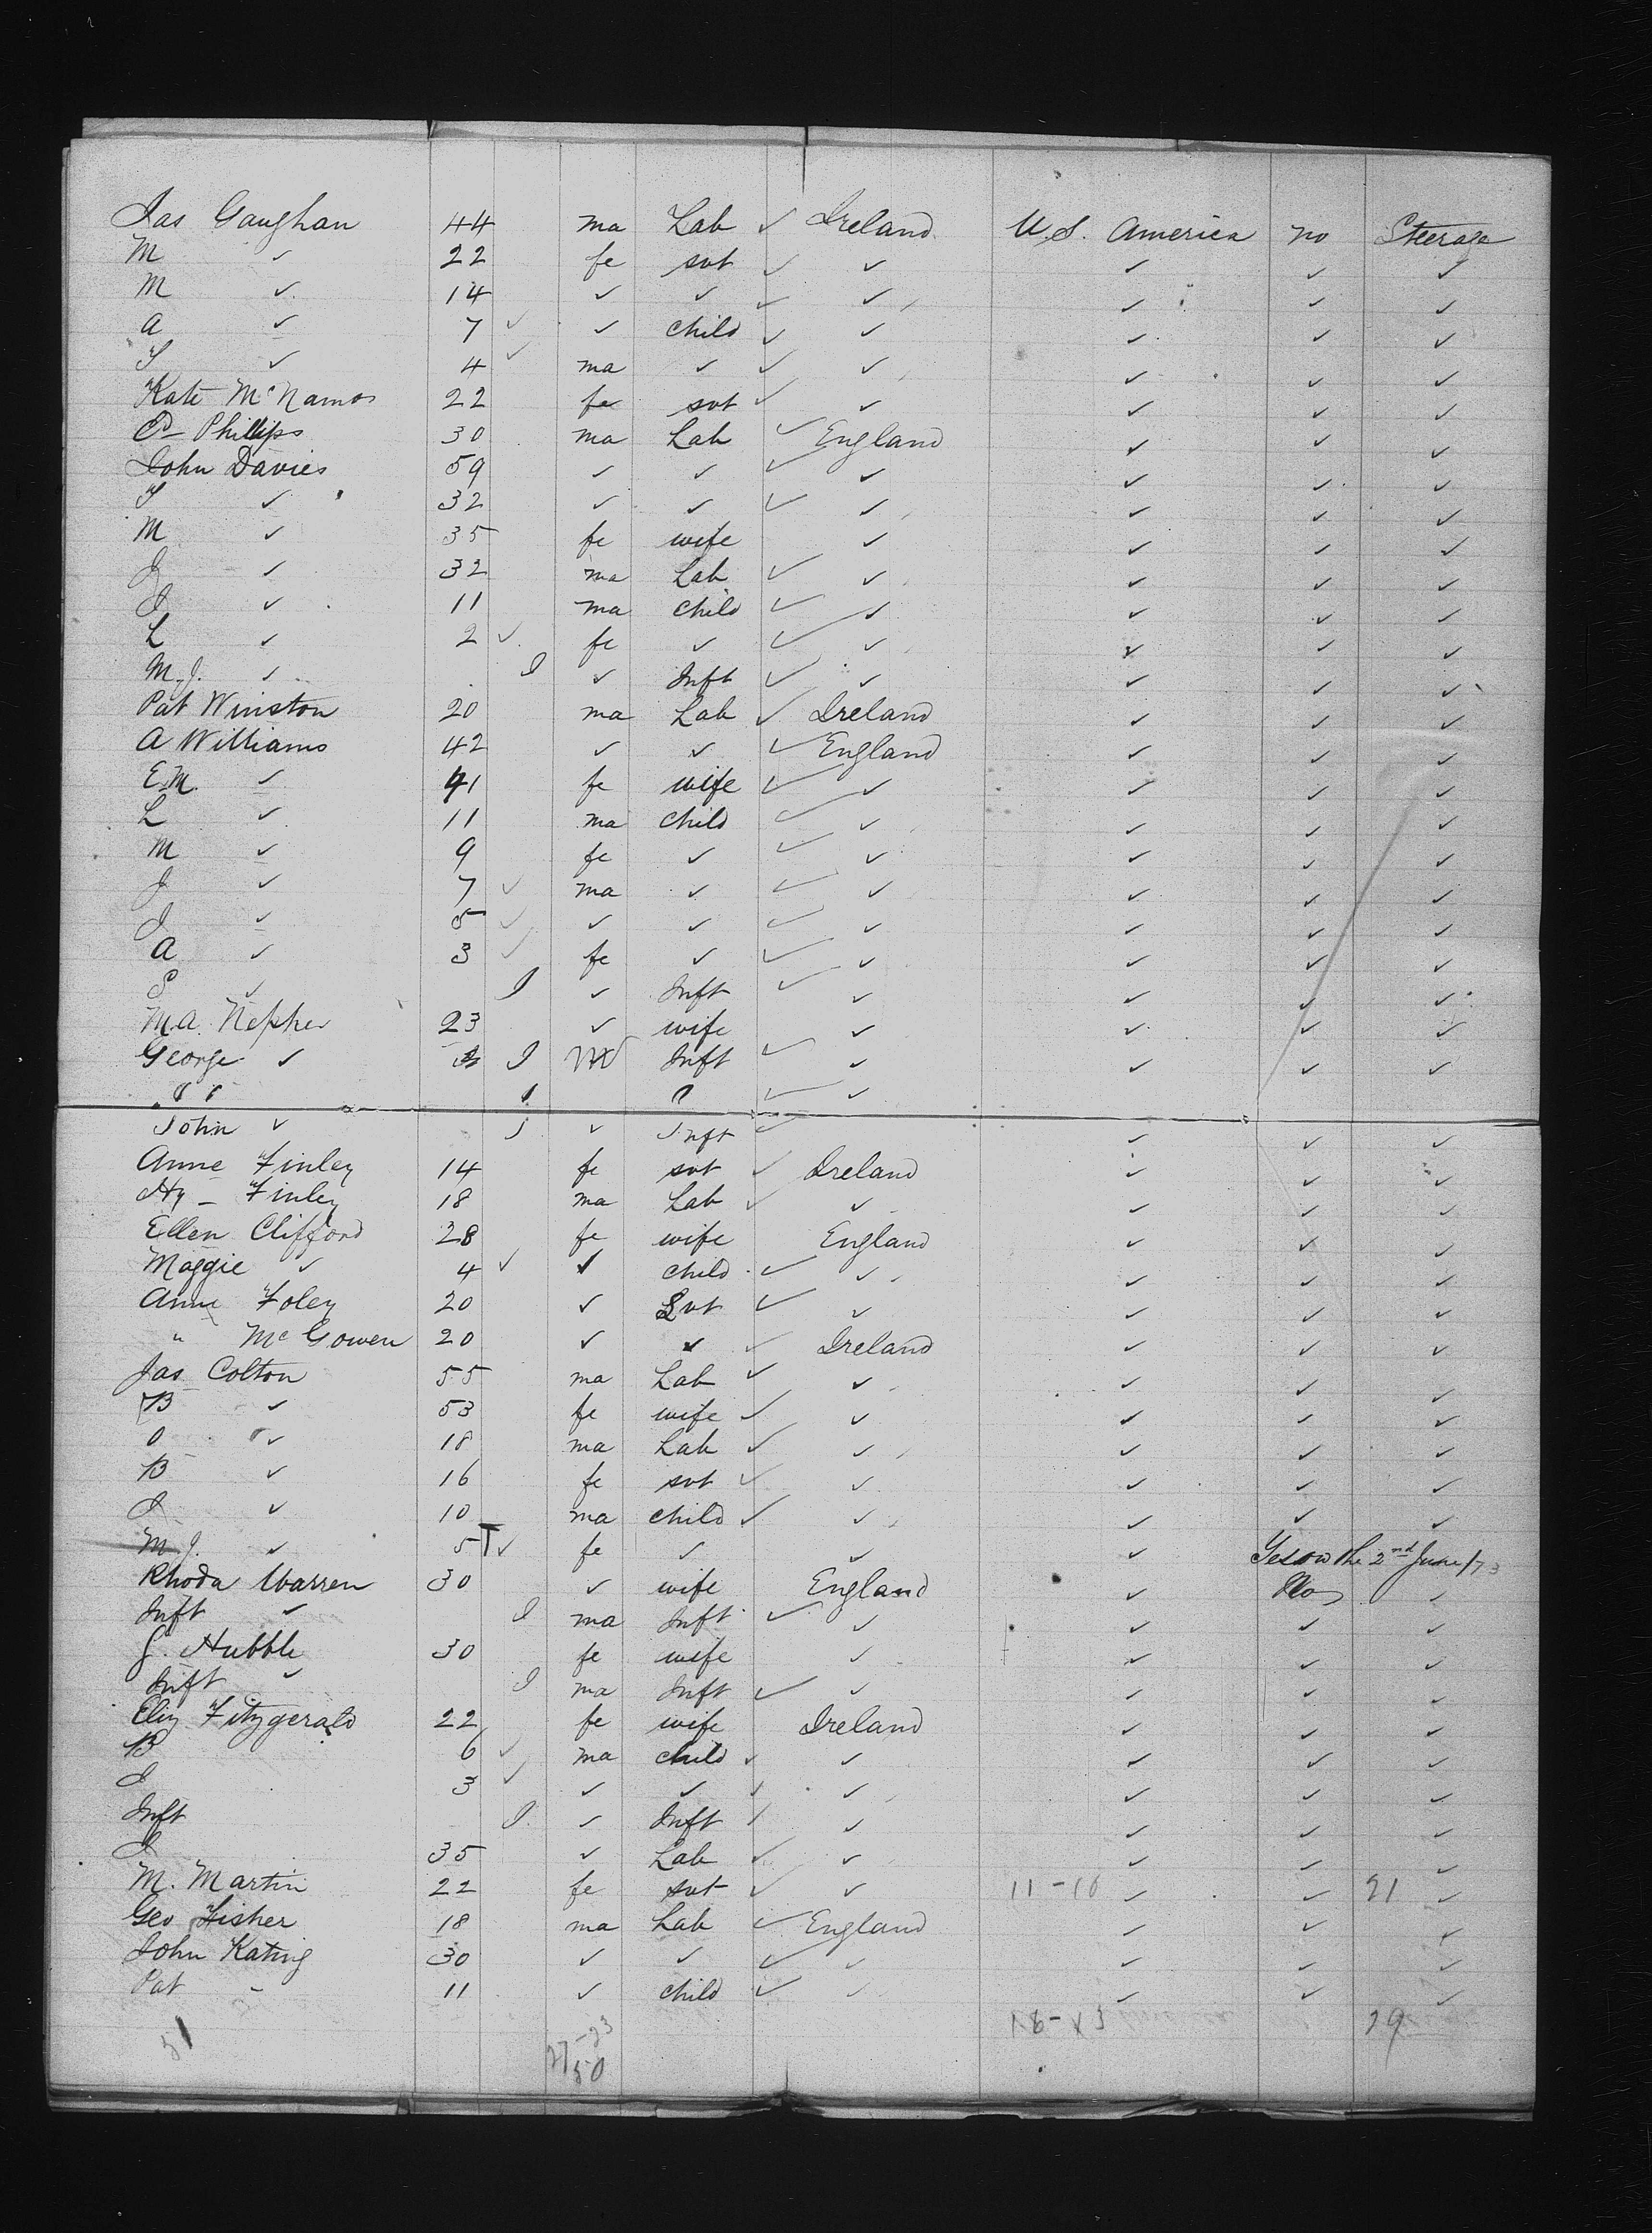 Jas Gaughan 44 ma Lab ✓ Ireland U.S. America no Steerage
M ✓ 22 fe svt ✓ ✓ ✓ ✓ ✓
M ✓ 14 ✓ ✓ ✓ ✓ ✓ ✓ ✓
A ✓ 7 ✓ ✓ child ✓ ✓ ✓ ✓ ✓
✓ 4 ✓ ma ✓ ✓ ✓ ✓ ✓ ✓
Kate McNamos 22 fe svt ✓ ✓ ✓ ✓ ✓
P- Phillips 30 ma Lab ✓ England ✓ ✓ ✓
John Davies 59 ✓ ✓ ✓ ✓ ✓ ✓ ✓
✓ 32 ✓ ✓ ✓ ✓ ✓ ✓ ✓
M ✓ 35 fe wife ✓ ✓ ✓ ✓
J ✓ 32 ma Lab ✓ ✓ ✓ ✓ ✓
J ✓ 11 ma child ✓ ✓ ✓ ✓ ✓
L ✓ 2 ✓ fe ✓ ✓ ✓ ✓ ✓ ✓
M.J. ✓ I ✓ Inft ✓ ✓ ✓ ✓ ✓
Pat Winston 20 ma Lab ✓ Ireland ✓ ✓ ✓
A Williams 42 ✓ ✓ ✓ England ✓ ✓ ✓
E.M. ✓ 41 fe wife ✓ ✓ ✓ ✓ ✓
L ✓ 11 ma child ✓ ✓ ✓ ✓ ✓
M ✓ 9 fe ✓ ✓ ✓ ✓ ✓ ✓
J ✓ 7 ✓ ma ✓ ✓ ✓ ✓ ✓ ✓
J ✓ 5 ✓ ✓ ✓ ✓ ✓ ✓ ✓ ✓
A ✓ 3 ✓ fe ✓ ✓ ✓ ✓ ✓ ✓
S ✓ I ✓ Inft ✓ ✓ ✓ ✓ ✓
M.A. Nepher 23 ✓ wife ✓ ✓ ✓ ✓
George ✓ I Inft ✓ ✓ ✓ ✓ ✓
✓ ✓
John ✓ I ✓ Inft ✓ ✓ ✓ ✓
Anne Finley 14 fe svt ✓ Ireland ✓ ✓ ✓
Hy - Finley 18 ma Lab ✓ ✓ ✓ ✓ ✓
Ellen Clifford 28 fe wife England ✓ ✓ ✓
Maggie ✓ 4 ✓ ✓ child ✓ ✓ ✓ ✓ ✓
Anne Foley 20 ✓ Svt ✓ ✓ ✓ ✓ ✓
" McGowen 20 ✓ ✓ ✓ Ireland ✓ ✓ ✓
Jas Colton 55 ma Lab ✓ ✓ ✓ ✓ ✓
B ✓ 53 fe wife ✓ ✓ ✓ ✓ ✓
O ✓ 18 ma Lab ✓ ✓ ✓ ✓ ✓
B ✓ 16 fe svt ✓ ✓ ✓ ✓ ✓
J ✓ 10 ma child ✓ ✓ ✓ ✓ ✓
M.J. ✓ 5 T ✓ fe ✓ ✓ ✓ Yes on the 2nd June/73
Rhoda Warren 30 ✓ wife England ✓ No ✓
Inft ✓ I ma Inft ✓ ✓ ✓ ✓ ✓
J. Hubble 30 fe wife ✓ ✓ ✓ ✓
Inft ✓ I ma Inft ✓ ✓ ✓ ✓ ✓
Eliz Fitzgerald 22 fe wife Ireland ✓ ✓ ✓
B 6 ✓ ma child ✓ ✓ ✓ ✓ ✓
J 3 ✓ ✓ ✓ ✓ ✓ ✓ ✓ ✓
Inft I ✓ Inft ✓ ✓ ✓ ✓ ✓
J 35 ✓ Lab ✓ ✓ ✓ ✓ ✓
M. Martin 22 fe svt ✓ ✓ 11-10 ✓ ✓ 21 ✓
Geo Fisher 18 ma Lab ✓ England ✓ ✓ ✓
John Kating 30 ✓ ✓ ✓ ✓ ✓ ✓ ✓
Pat - 11 ✓ child ✓ ✓ ✓ ✓ ✓
51 27-23 16-13 29
50